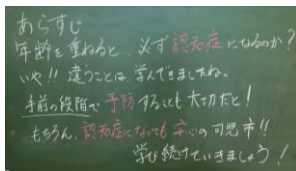 あらすじ
年齢を重ねると…必ず認知症になるのか?
いや!!違うことは学んできましたね。
手前の段階で予防することも大切だと!
もちろん、認知症になっても安心の可児市!!
学び続けていきましょう!